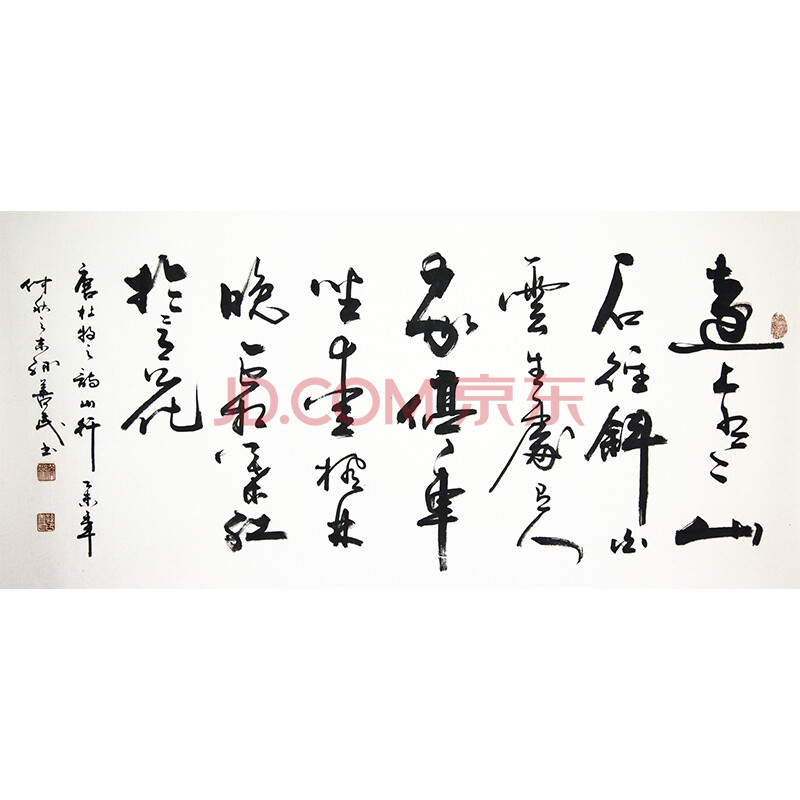 遠上寒山
石徑斜白
雲生處有人
家停車
坐愛楓林
晚霜葉紅
於二月花
唐杜牧之詩山行 乙未年
秋之善民書
JD.COM 京东